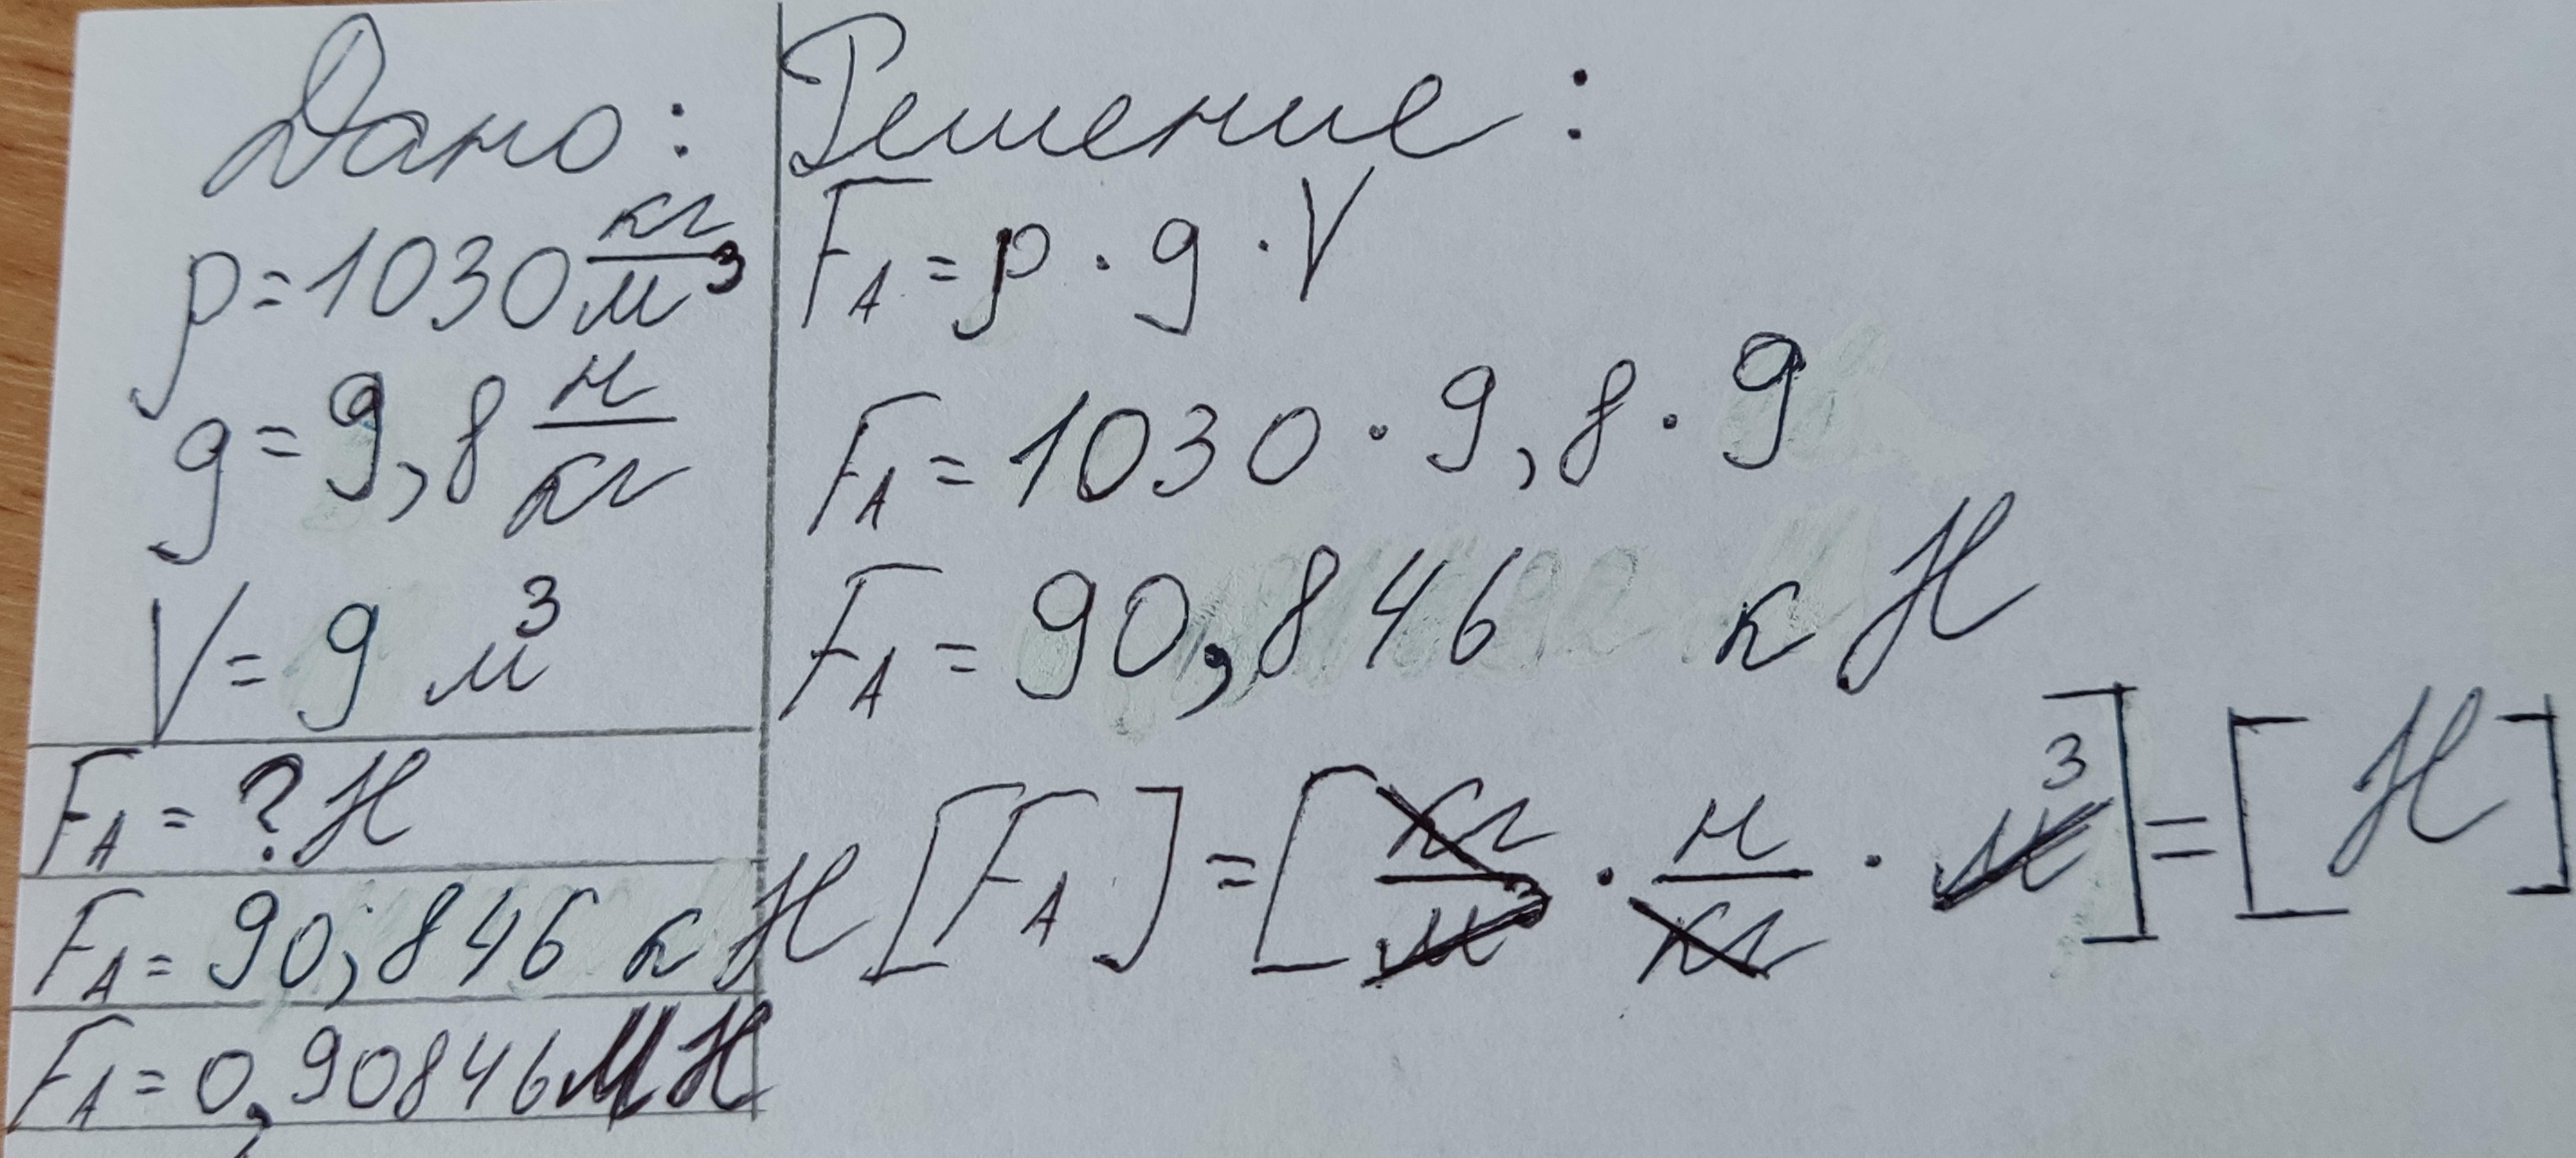 Дано:
ρ=1030 кг/м³
g=9,8 н/кг
V=9 м³
F_A=? Н
F_A=90,846 кН
F_A=0,90846 МН
Решение:
F_A=ρ·g·V
F_A=1030·9,8·9
F_A=90,846 кН
[F_A]=[кг/м³·н/кг·м³]=[Н]